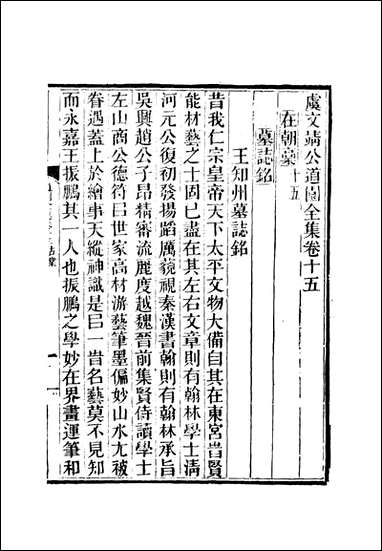 虞文靖公道園全集卷十五
在朝稾十五
墓誌銘
王知州墓誌銘
昔我仁宗皇帝天下太平文物大備自其在東宮昔賢
能材藝之士固已盡在其左右文章則有翰林學士清
河元公復初發揚蹈厲藐視秦漢書翰則有翰林承旨
吳興趙公子昂精審流麗度越魏晉前集賢侍讀學士
左山商公德符曰世家高材游藝筆墨偏妙山水尤被
眷遇蓋上於繪事天縱神識是曰一昔名藝莫不見知
而永嘉王振鵬其一人也振鵬之學妙在界畫運筆和